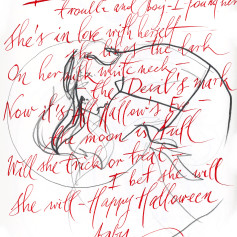 trouble and boy-I found her
She's in love with herself
the dark
On her milk white neck-
The Devil's mark
Now it's All Hallow's Eve-
the moon is full
Will she trick or treat-
I bet she will
She will-Happy Halloween
baby